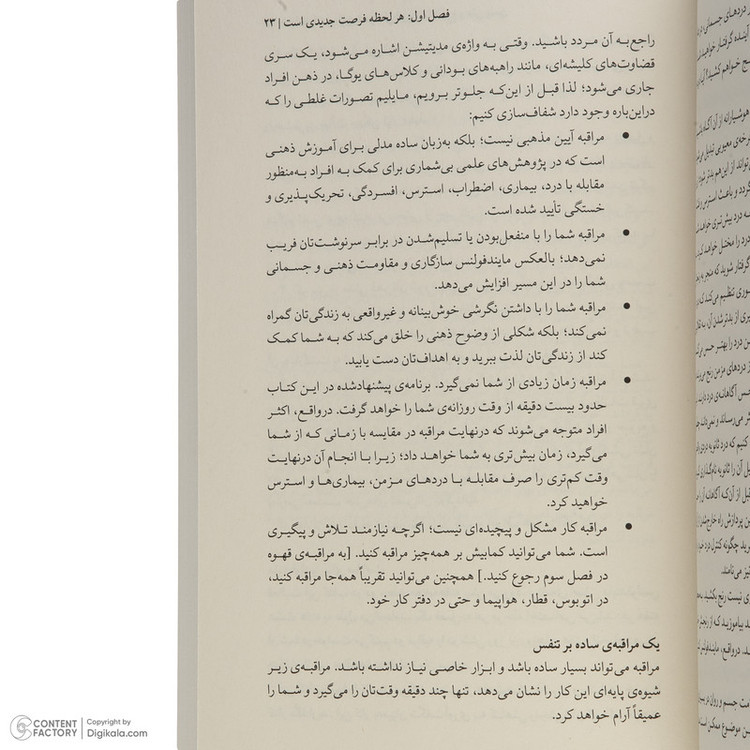 فصل اول: هر لحظه فرصت جدیدی است | ۲۳
راجع‌به آن مردد باشید. وقتی به واژه‌ی مدیتیشن اشاره می‌شود، یک سری
قضاوت‌های کلیشه‌ای، مانند راهبه‌های بودائی و کلاس‌های یوگا، در ذهن افراد
جاری می‌شود؛ لذا قبل از این‌که جلوتر برویم، مایلیم تصورات غلطی را که
دراین‌باره وجود دارد شفاف‌سازی کنیم:
● مراقبه آیین مذهبی نیست؛ بلکه به‌زبان ساده مدلی برای آموزش ذهنی
است که در پژوهش‌های علمی بی‌شماری برای کمک به افراد به‌منظور
مقابله با درد، بیماری، اضطراب، استرس، افسردگی، تحریک‌پذیری و
خستگی تأیید شده است.
● مراقبه شما را با منفعل‌بودن یا تسلیم‌شدن در برابر سرنوشت‌تان فریب
نمی‌دهد؛ بالعکس مایندفولنس سازگاری و مقاومت ذهنی و جسمانی
شما را در این مسیر افزایش می‌دهد.
● مراقبه شما را با داشتن نگرشی خوش‌بینانه و غیرواقعی به زندگی‌تان گمراه
نمی‌کند؛ بلکه شکلی از وضوح ذهنی را خلق می‌کند که به شما کمک
کند از زندگی‌تان لذت ببرید و به اهداف‌تان دست یابید.
● مراقبه زمان زیادی از شما نمی‌گیرد. برنامه‌ی پیشنهادشده در این کتاب
حدود بیست دقیقه از وقت روزانه‌ی شما را خواهد گرفت. درواقع، اکثر
افراد متوجه می‌شوند که درنهایت مراقبه در مقایسه با زمانی که از شما
می‌گیرد، زمان بیش‌تری به شما خواهد داد؛ زیرا با انجام آن درنهایت
وقت کم‌تری را صرف مقابله با دردهای مزمن، بیماری‌ها و استرس
خواهید کرد.
● مراقبه کار مشکل و پیچیده‌ای نیست؛ اگرچه نیازمند تلاش و پیگیری
است. شما می‌توانید کمابیش بر همه‌چیز مراقبه کنید. [به مراقبه‌ی قهوه
در فصل سوم رجوع کنید.] همچنین می‌توانید تقریباً همه‌جا مراقبه کنید،
در اتوبوس، قطار، هواپیما و حتی در دفتر کار خود.
یک مراقبه‌ی ساده بر تنفس
مراقبه می‌تواند بسیار ساده باشد و ابزار خاصی نیاز نداشته باشد. مراقبه‌ی زیر
شیوه‌ی پایه‌ای این کار را نشان می‌دهد، تنها چند دقیقه وقت‌تان را می‌گیرد و شما را
عمیقاً آرام خواهد کرد.
CONTENT FACTORY | Copyright by Digikala.com